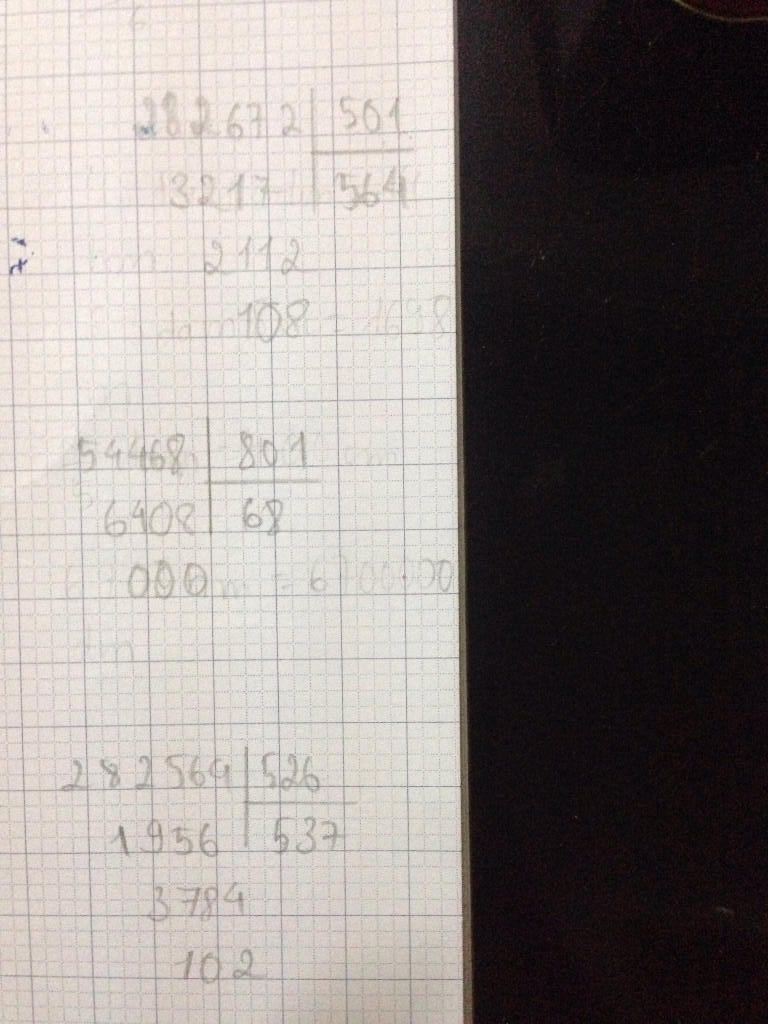 282672 501
3217 564
2112
108
54468 801
6408 68
000
282564 526
1956 537
3784
102